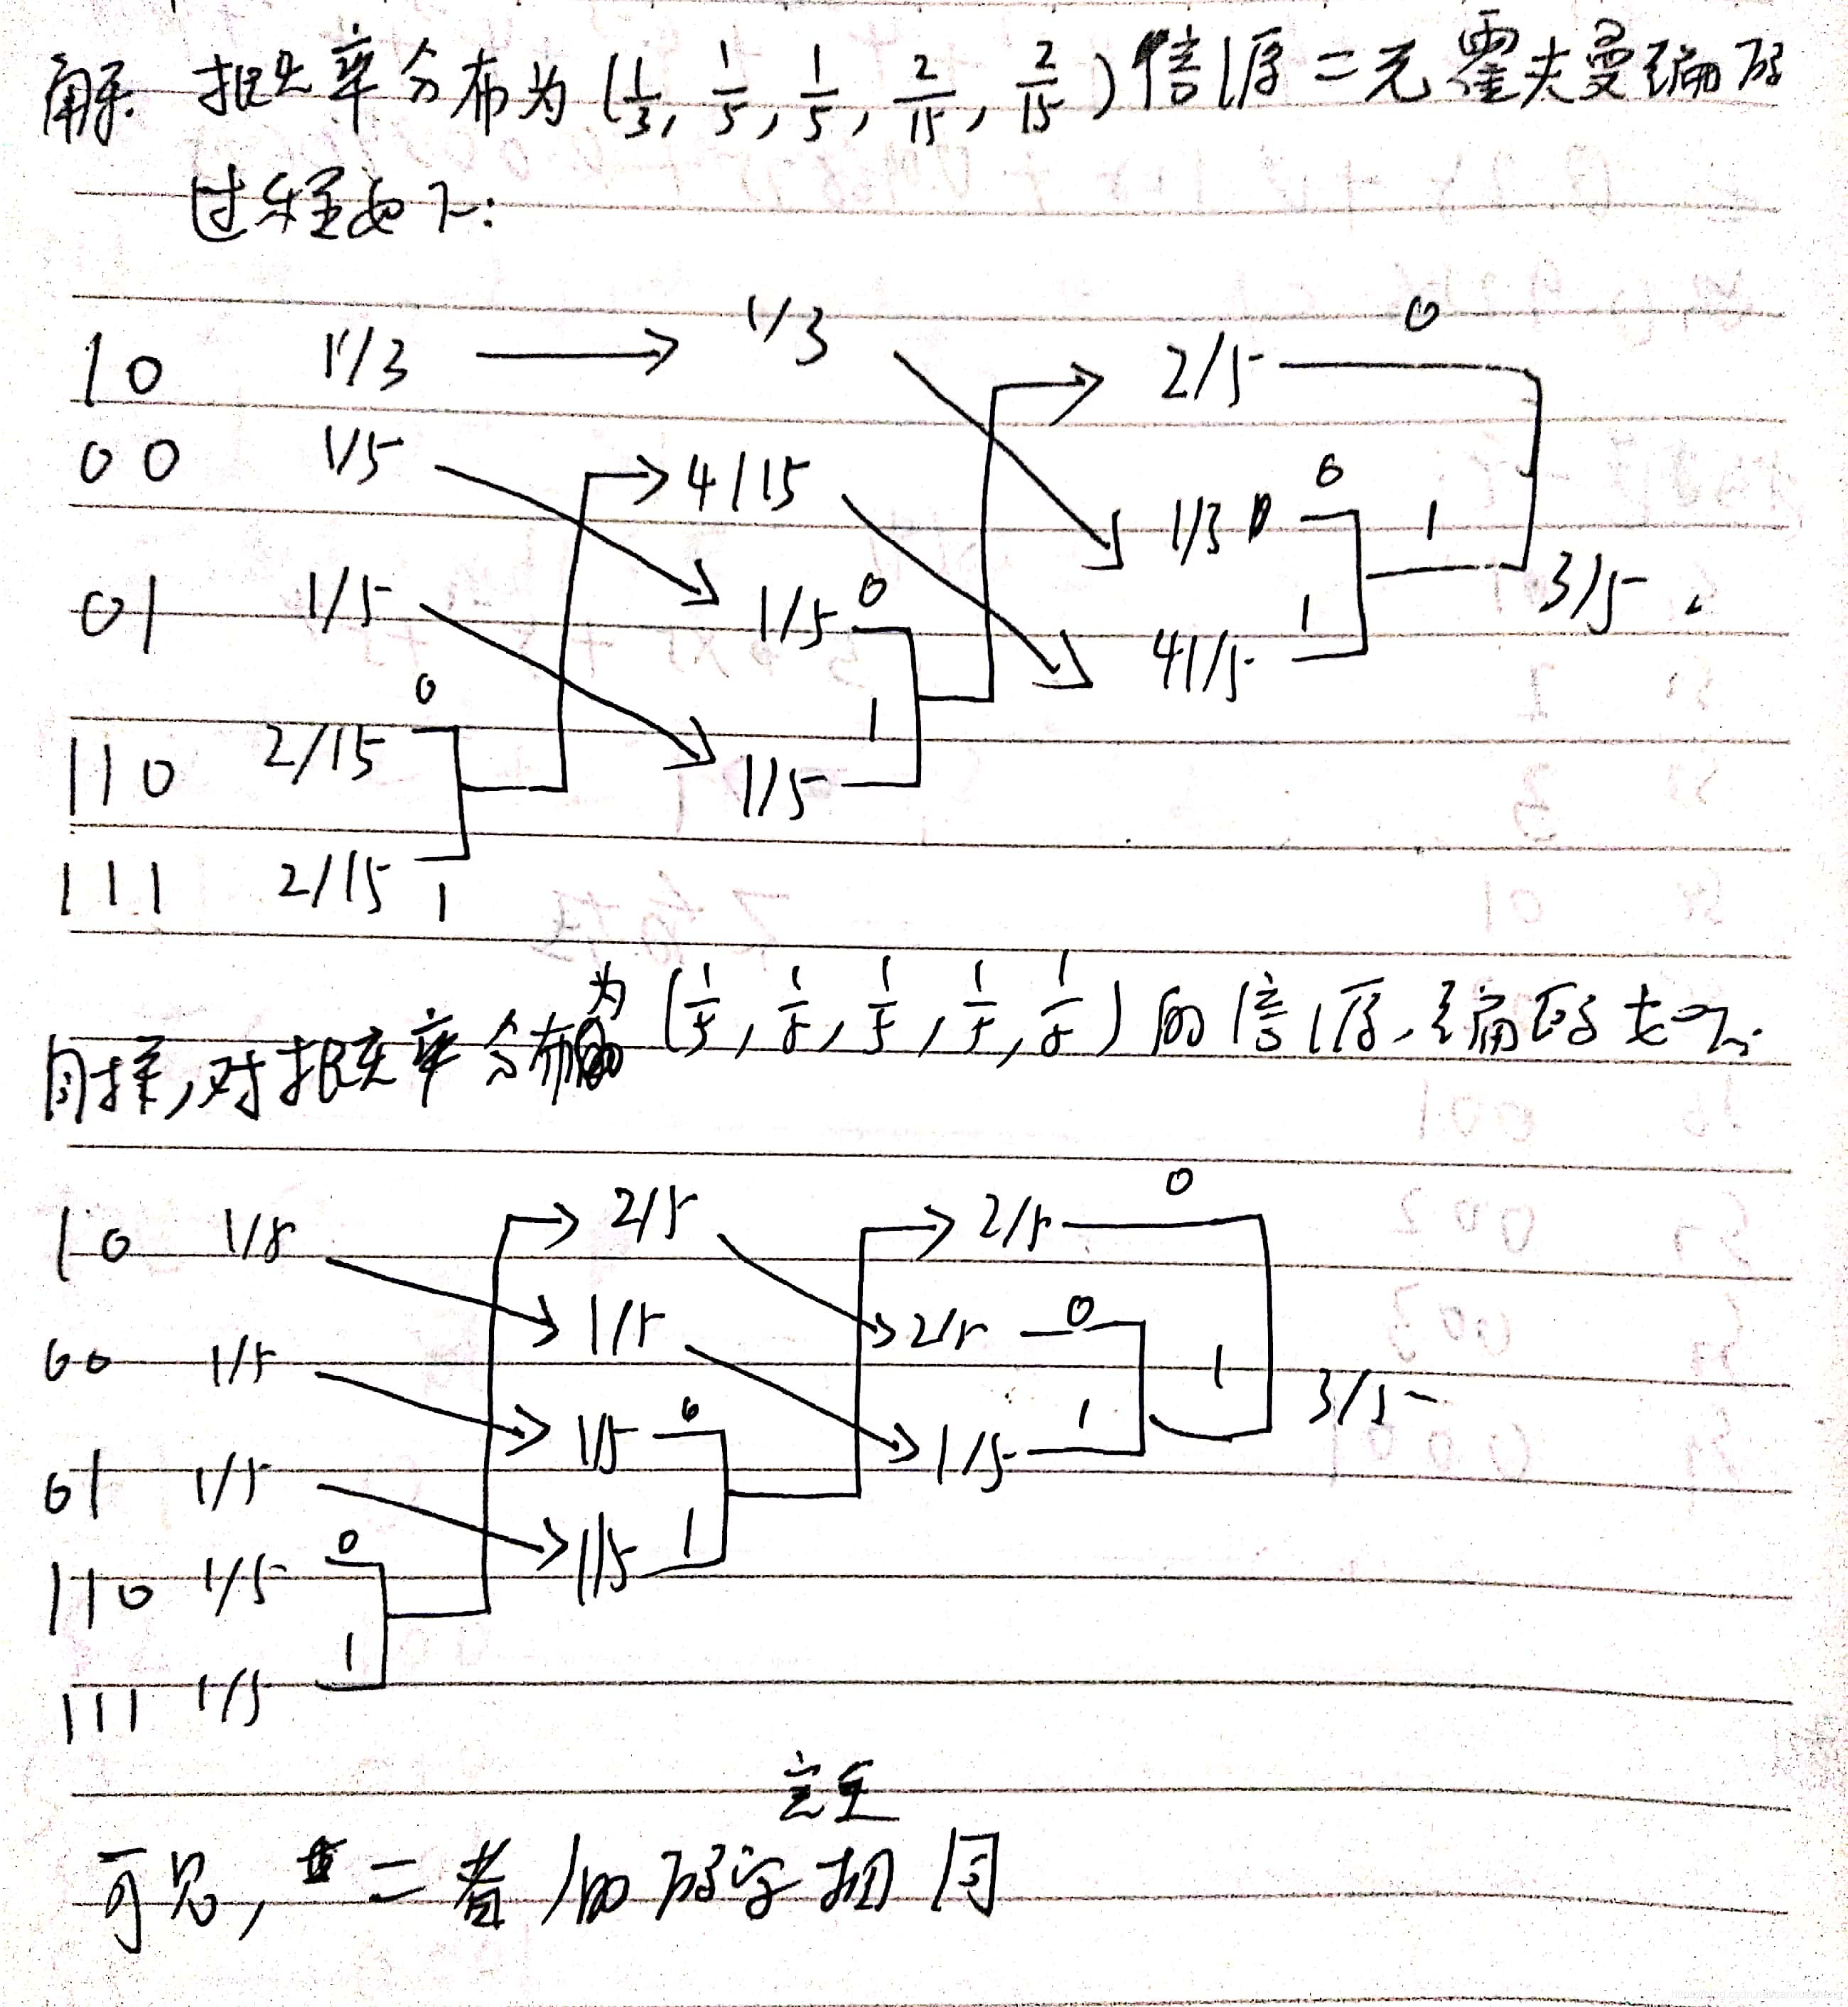 解: 概率分布为 (1/3, 1/5, 1/5, 2/15, 2/15) 信源二元霍夫曼编码
过程如下:
0
10 1/3 1/3 2/5
00 1/5 4/15 0
1/3 1
01 1/5 1/5 0 3/5
1 4/15
0
110 2/15 1
1/5
111 2/15 1
同样, 对概率分布为 (1/5, 1/5, 1/5, 1/5, 1/5) 的信源, 编码
0
10 1/5 2/5 2/5
1/5 2/5 0
00 1/5 1
1/5 0 1/5 1 3/5
01 1/5
0 1/5 1
110 1/5
1
111 1/5
完全
可见, 二者的码字相同